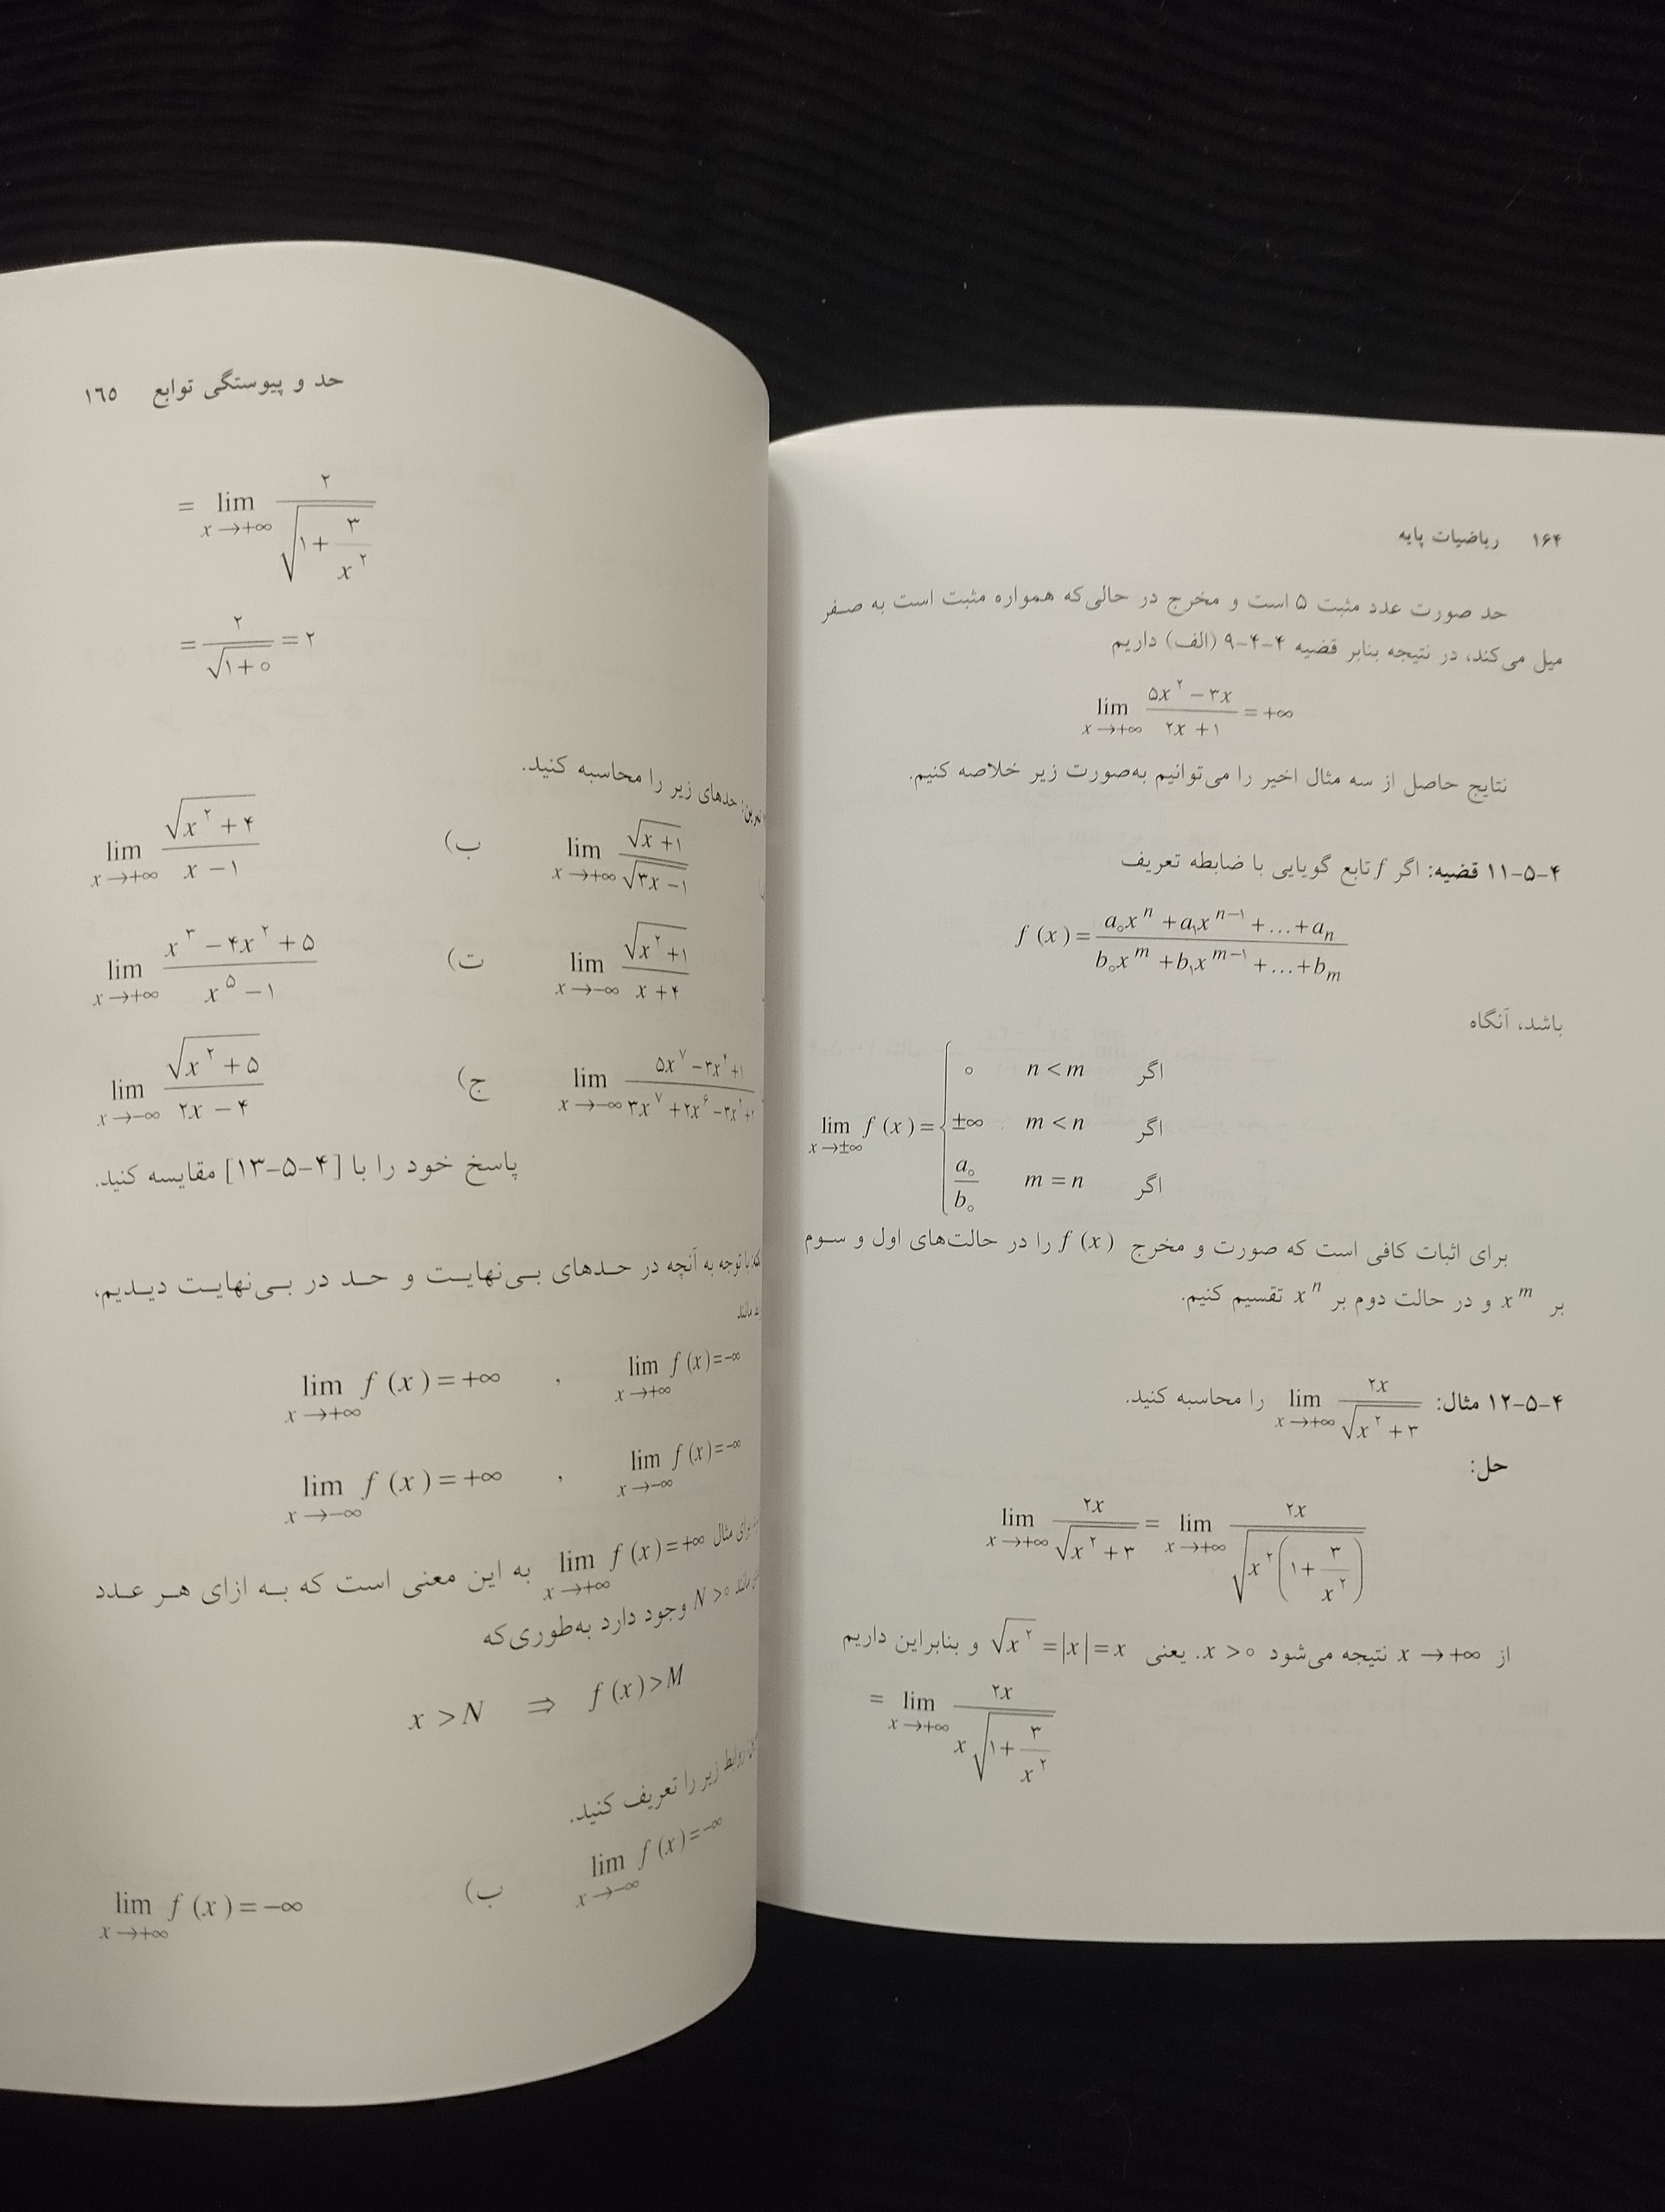 ۱۶۴ ریاضیات پایه
حد صورت عدد مثبت ۵ است و مخرج در حالی‌که همواره مثبت است به صفر
میل می‌کند، در نتیجه بنابر قضیه ۴-۴-۹ (الف) داریم
lim x→+∞ (۵x^۲ − ۳x)/(۲x + ۱) = +∞
نتایج حاصل از سه مثال اخیر را می‌توانیم به‌صورت زیر خلاصه کنیم.
۴-۵-۱۱ قضیه: اگر f تابع گویایی با ضابطه تعریف
f (x) = (a₀x^n + a₁x^(n−۱) + ... + a_n)/(b₀x^m + b₁x^(m−۱) + ... + b_m)
باشد، آنگاه
۰ n < m اگر
lim x→±∞ f (x) = ±∞ m < n اگر
a₀/b₀ m = n اگر
برای اثبات کافی است که صورت و مخرج f (x) را در حالت‌های اول و سوم
بر x^m و در حالت دوم بر x^n تقسیم کنیم.
۴-۵-۱۲ مثال: lim x→+∞ ۲x/√(x^۲ + ۳) را محاسبه کنید.
حل:
lim x→+∞ ۲x/√(x^۲ + ۳) = lim x→+∞ ۲x/√(x^۲(۱ + ۳/x^۲))
از x → +∞ نتیجه می‌شود x > ۰. یعنی √x^۲ = |x| = x و بنابراین داریم
= lim x→+∞ ۲x/(x√(۱ + ۳/x^۲))
حد و پیوستگی توابع ۱۶۵
= lim x→+∞ ۲/√(۱ + ۳/x^۲)
= ۲/√(۱ + ۰) = ۲
حدهای زیر را محاسبه کنید.
lim x→+∞ √(x + ۱)/√(۳x − ۱) ب) lim x→+∞ √(x^۲ + ۴)/(x − ۱)
lim x→−∞ √(x^۲ + ۱)/(x + ۴) ت) lim x→+∞ (x^۳ − ۴x^۲ + ۵)/(x^۵ − ۱)
lim x→−∞ (۵x^۷ − ۳x^۴ + ۱)/(۳x^۷ + ۲x^۶ − ۳x^۲ + ۱) ج) lim x→−∞ √(x^۲ + ۵)/(۲x − ۴)
پاسخ خود را با [۴-۵-۱۳] مقایسه کنید.
با توجه به آنچه در حدهای بی‌نهایت و حد در بی‌نهایت دیدیم،
مانند
lim x→+∞ f (x) = −∞ , lim x→+∞ f (x) = +∞
lim x→−∞ f (x) = −∞ , lim x→−∞ f (x) = +∞
برای مثال lim x→+∞ f (x) = +∞ به این معنی است که به ازای هر عدد
مانند N > ۰ وجود دارد به‌طوری‌که
x > N ⇒ f (x) > M
روابط زیر را تعریف کنید.
lim x→−∞ f (x) = −∞ ب) lim x→+∞ f (x) = −∞